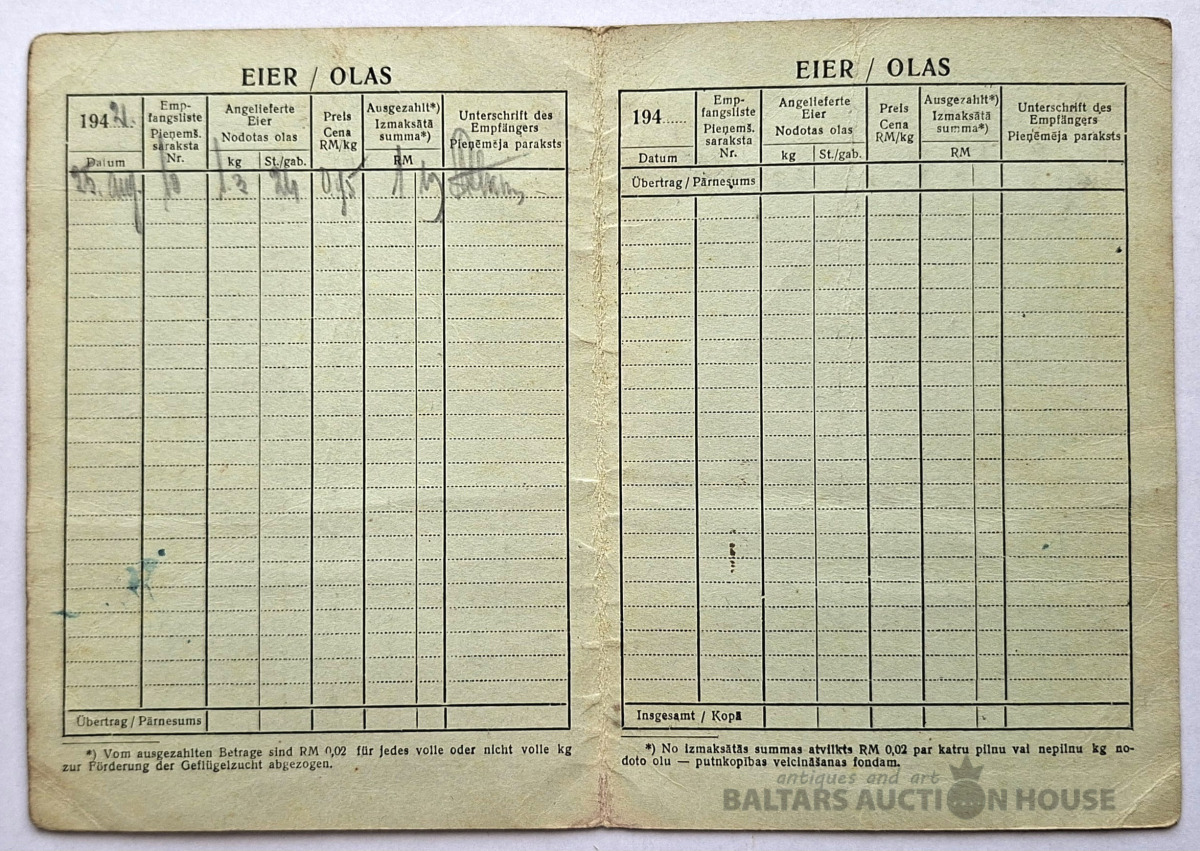 EIER / OLAS
194
Datum
Emp-
fangsliste
Pieņemš.
saraksta
Nr.
Angelieferte
Eier
Nodotas olas
kg St./gab.
Preis
Cena
RM/kg
Ausgezahlt*)
Izmaksātā
summa*)
RM
Unterschrift des
Empfängers
Pieņēmēja paraksts
25. aug. 10 1.3 24 0,95
Übertrag / Pārnesums
*) Vom ausgezahlten Betrage sind RM 0,02 für jedes volle oder nicht volle kg
zur Förderung der Geflügelzucht abgezogen.
EIER / OLAS
194......
Datum
Emp-
fangsliste
Pieņemš.
saraksta
Nr.
Angelieferte
Eier
Nodotas olas
kg St./gab.
Preis
Cena
RM/kg
Ausgezahlt*)
Izmaksātā
summa*)
RM
Unterschrift des
Empfängers
Pieņēmēja paraksts
Übertrag / Pārnesums
Insgesamt / Kopā
*) No izmaksātās summas atvilkts RM 0,02 par katru pilnu vai nepilnu kg no-
doto olu — putnkopības veicināšanas fondam.
antiques and art
BALTARS AUCTION HOUSE